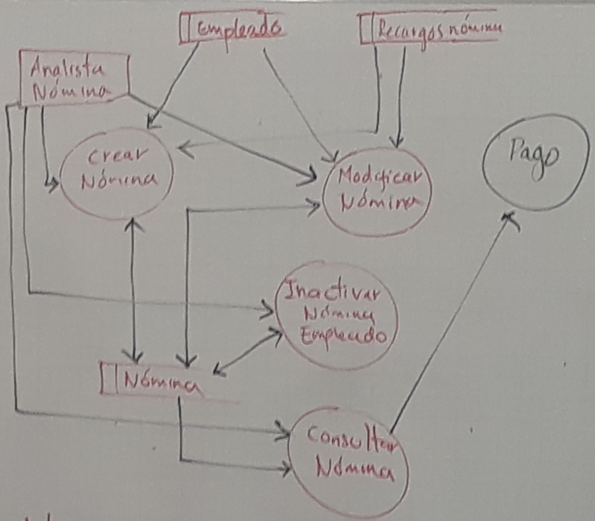 Empleado
Recargos nómina
Analista
Nómina
Crear
Nómina
Modificar
Nómina
Pago
Inactivar
Nómina
Empleado
Nómina
Consultar
Nómina